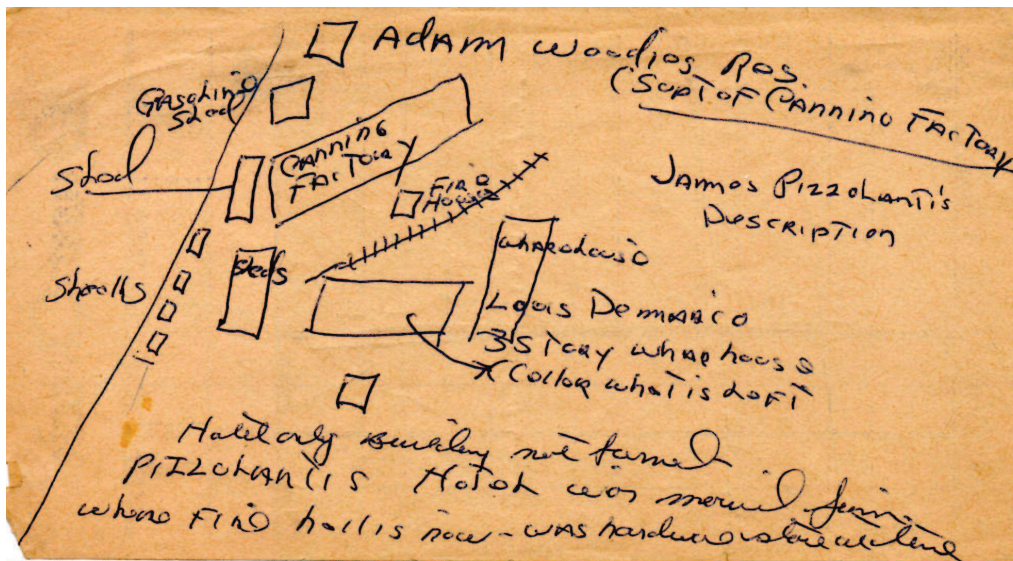 Adam Woodjos Ros.
(Supt of Canning Factory
Gasoline
Shed
Canning
Factory
Shed
Fire
House
James Pizzolanti's
Description
Wharehouse
Sheds
Louis Demarco
3 Story wharhouse
Cellar what is left
Hotel only building not
Pizzolantis Hotel was moved from
where Fire hall is now - was hardware store